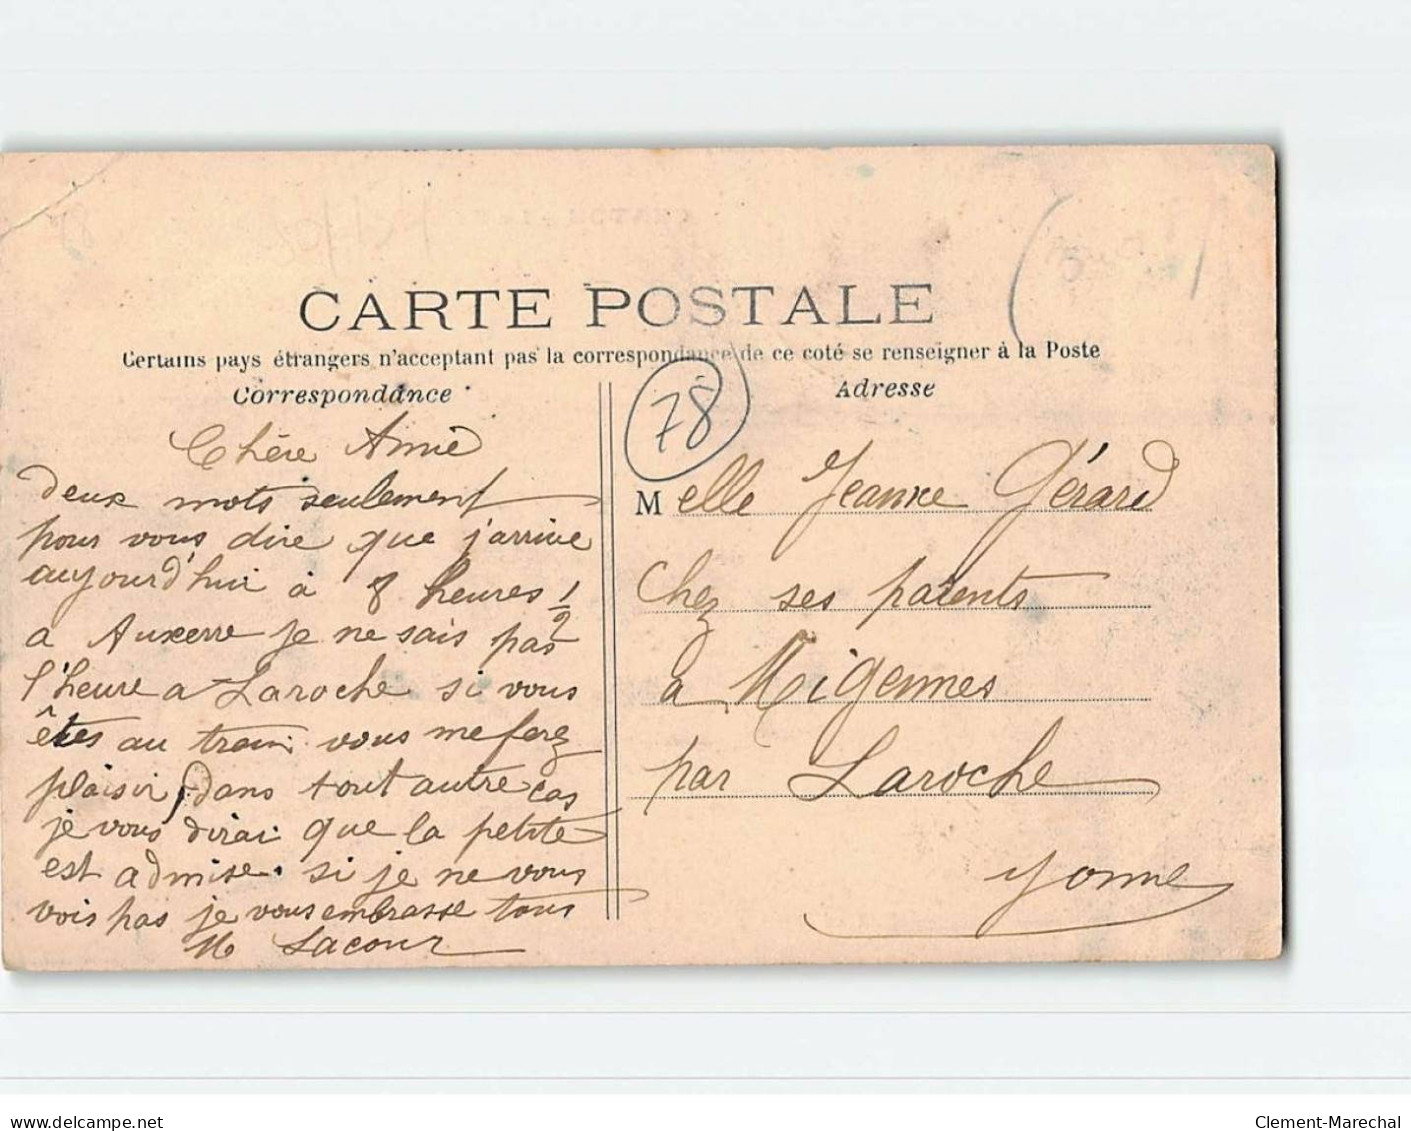 CARTE POSTALE
Certains pays étrangers n'acceptant pas la correspondance de ce coté se renseigner à la Poste
Correspondance
Chére Amie
deux mots seulement
pour vous dire que j'arrive
aujourd'hui à 8 heures 1/2
a Auxerre je ne sais pas
l'heure a Laroche si vous
êtes au train vous me ferez
plaisir, dans tout autre cas
je vous dirai que la petite
est admise. si je ne vous
vois pas je vous embrasse tous
M Lacour
78
Adresse
Melle Jeanne Gérard
Chez ses parents
a Migennes
par Laroche
Yonne
delcampe.net
Clement-Marechal